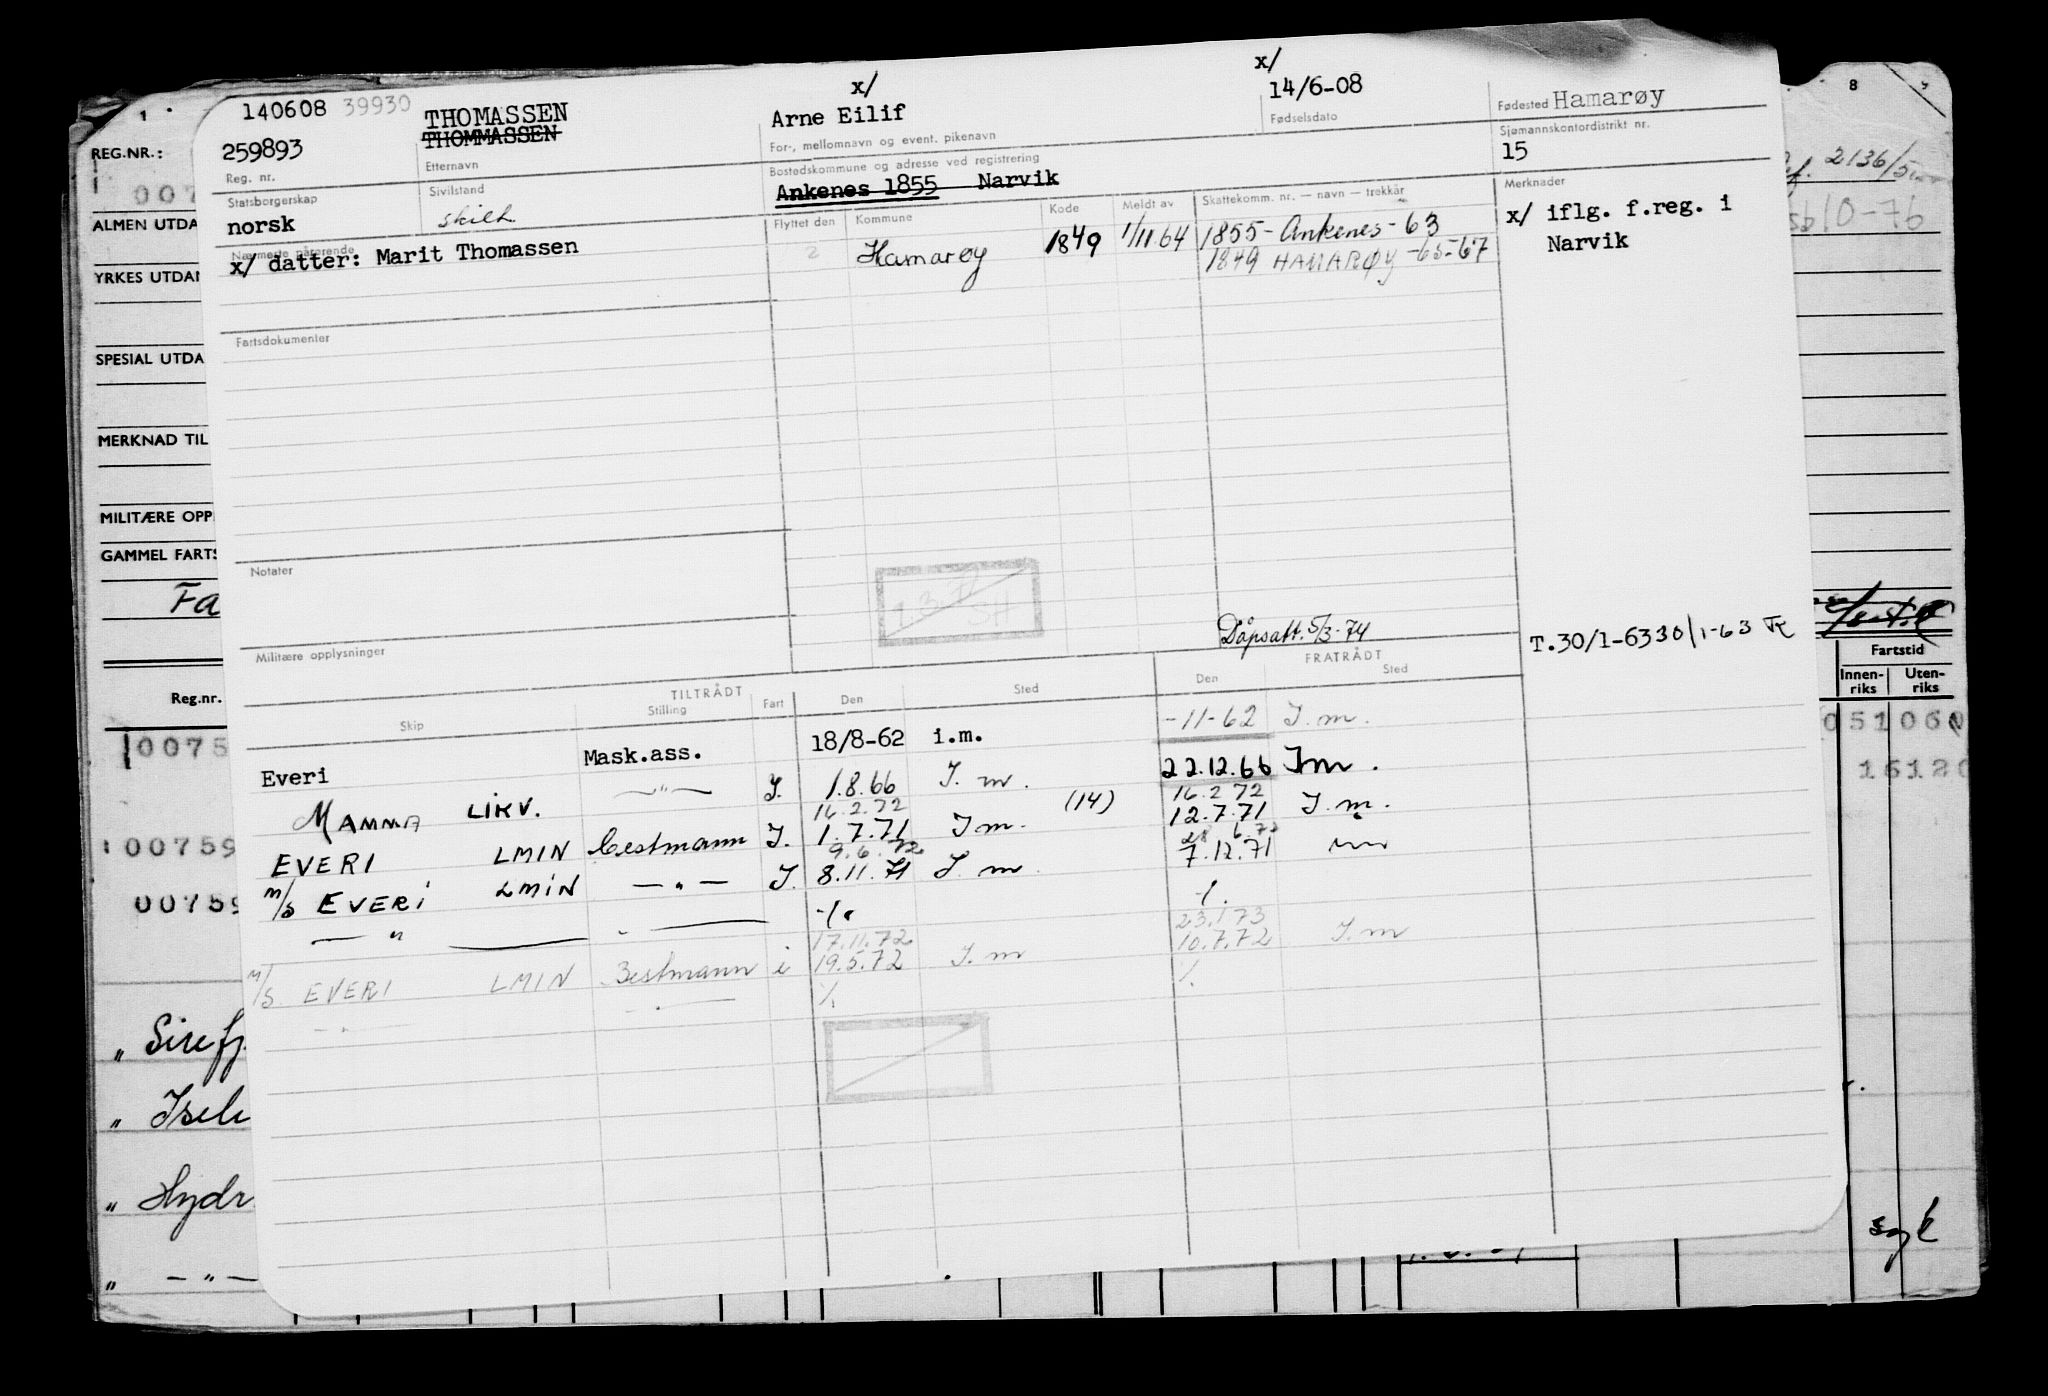 140608 39930 THOMASSEN x/ Arne Eilif x/ 14/6-08 Fødested Hamarøy
259893 THOMMASSEN For-, mellomnavn og event. pikenavn Fødselsdato Sjømannskontordistrikt nr.
Reg. nr. Etternavn Bostedskommune og adresse ved registrering 15
Statsborgerskap Sivilstand Ankenes 1855 Narvik Merknader
norsk skilt Flyttet den Kommune Kode Meldt av Skattekomm. nr. — navn — trekkår x/ iflg. f.reg. i
Nærmeste pårørende Hamarøy 1849 1/11 64 1855 - Ankenes - 63 Narvik
x/ datter: Marit Thomassen 1849 HAMARØY -65-67
Fartsdokumenter
Notater
SH
Dåpsatt. 5/3-74
T.30/1-63 30/1-63
Militære opplysninger
TILTRÅDT FRATRÅDT
Skip Stilling Fart Den Sted Den Sted
Everi Mask.ass. 18/8-62 i.m. -11-62 I.m.
MAMMA LIKV. —"— I. 1.8.66 I.m. 22.12.66 Im.
16.2.72 (14) 16.2 72
EVERI LMIN Bestmann I. 1.7.71 I m. 12.7.71 I.m.
9.6.72 28 6.72
M/S EVERI LMIN —"— I. 8.11.71 I.m. 7.12.71
—"— -/. -/.
17.11.72 23.1 73
M/S EVERI LMIN Bestmann i 19.5.72 I.m 10.7.72 I.m
—"— —"— /. /.
1
REG.NR.:
007
ALMEN UTDA
YRKES UTDAN
SPESIAL UTDA
MERKNAD TIL
MILITÆRE OPP
GAMMEL FARTS
Fa
Reg.nr.
0075
00759
00759
" Isele
" Hydr
" —"—
8
2136/5
10-76
Fartstid
Innen-riks Uten-riks
05106
1612